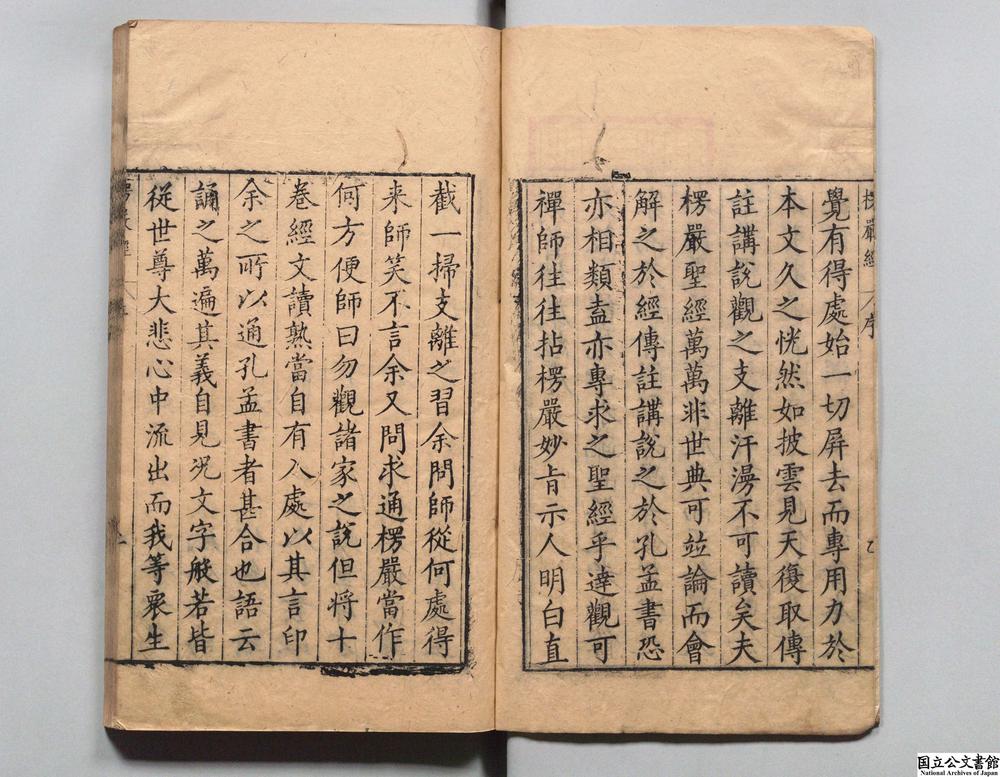 楞嚴經
序
覺有得處始一切屏去而專用力於
本文久之恍然如披雲見天復取傳
註講說觀之支離汗漫不可讀矣夫
楞嚴聖經萬萬非世典可竝論而會
解之於經傳註講說之於孔孟書恐
亦相類盍亦專求之聖經乎達觀可
禪師往往拈楞嚴妙旨示人明白直
截一掃支離之習余問師從何處得
来師笑不言余又問求通楞嚴當作
何方便師曰勿觀諸家之說但将十
卷經文讀熟當自有入處以其言印
余之所以通孔孟書者甚合也語云
誦之萬遍其義自見况文字般若皆
從世尊大悲心中流出而我等衆生
国立公文書館
National Archives of Japan